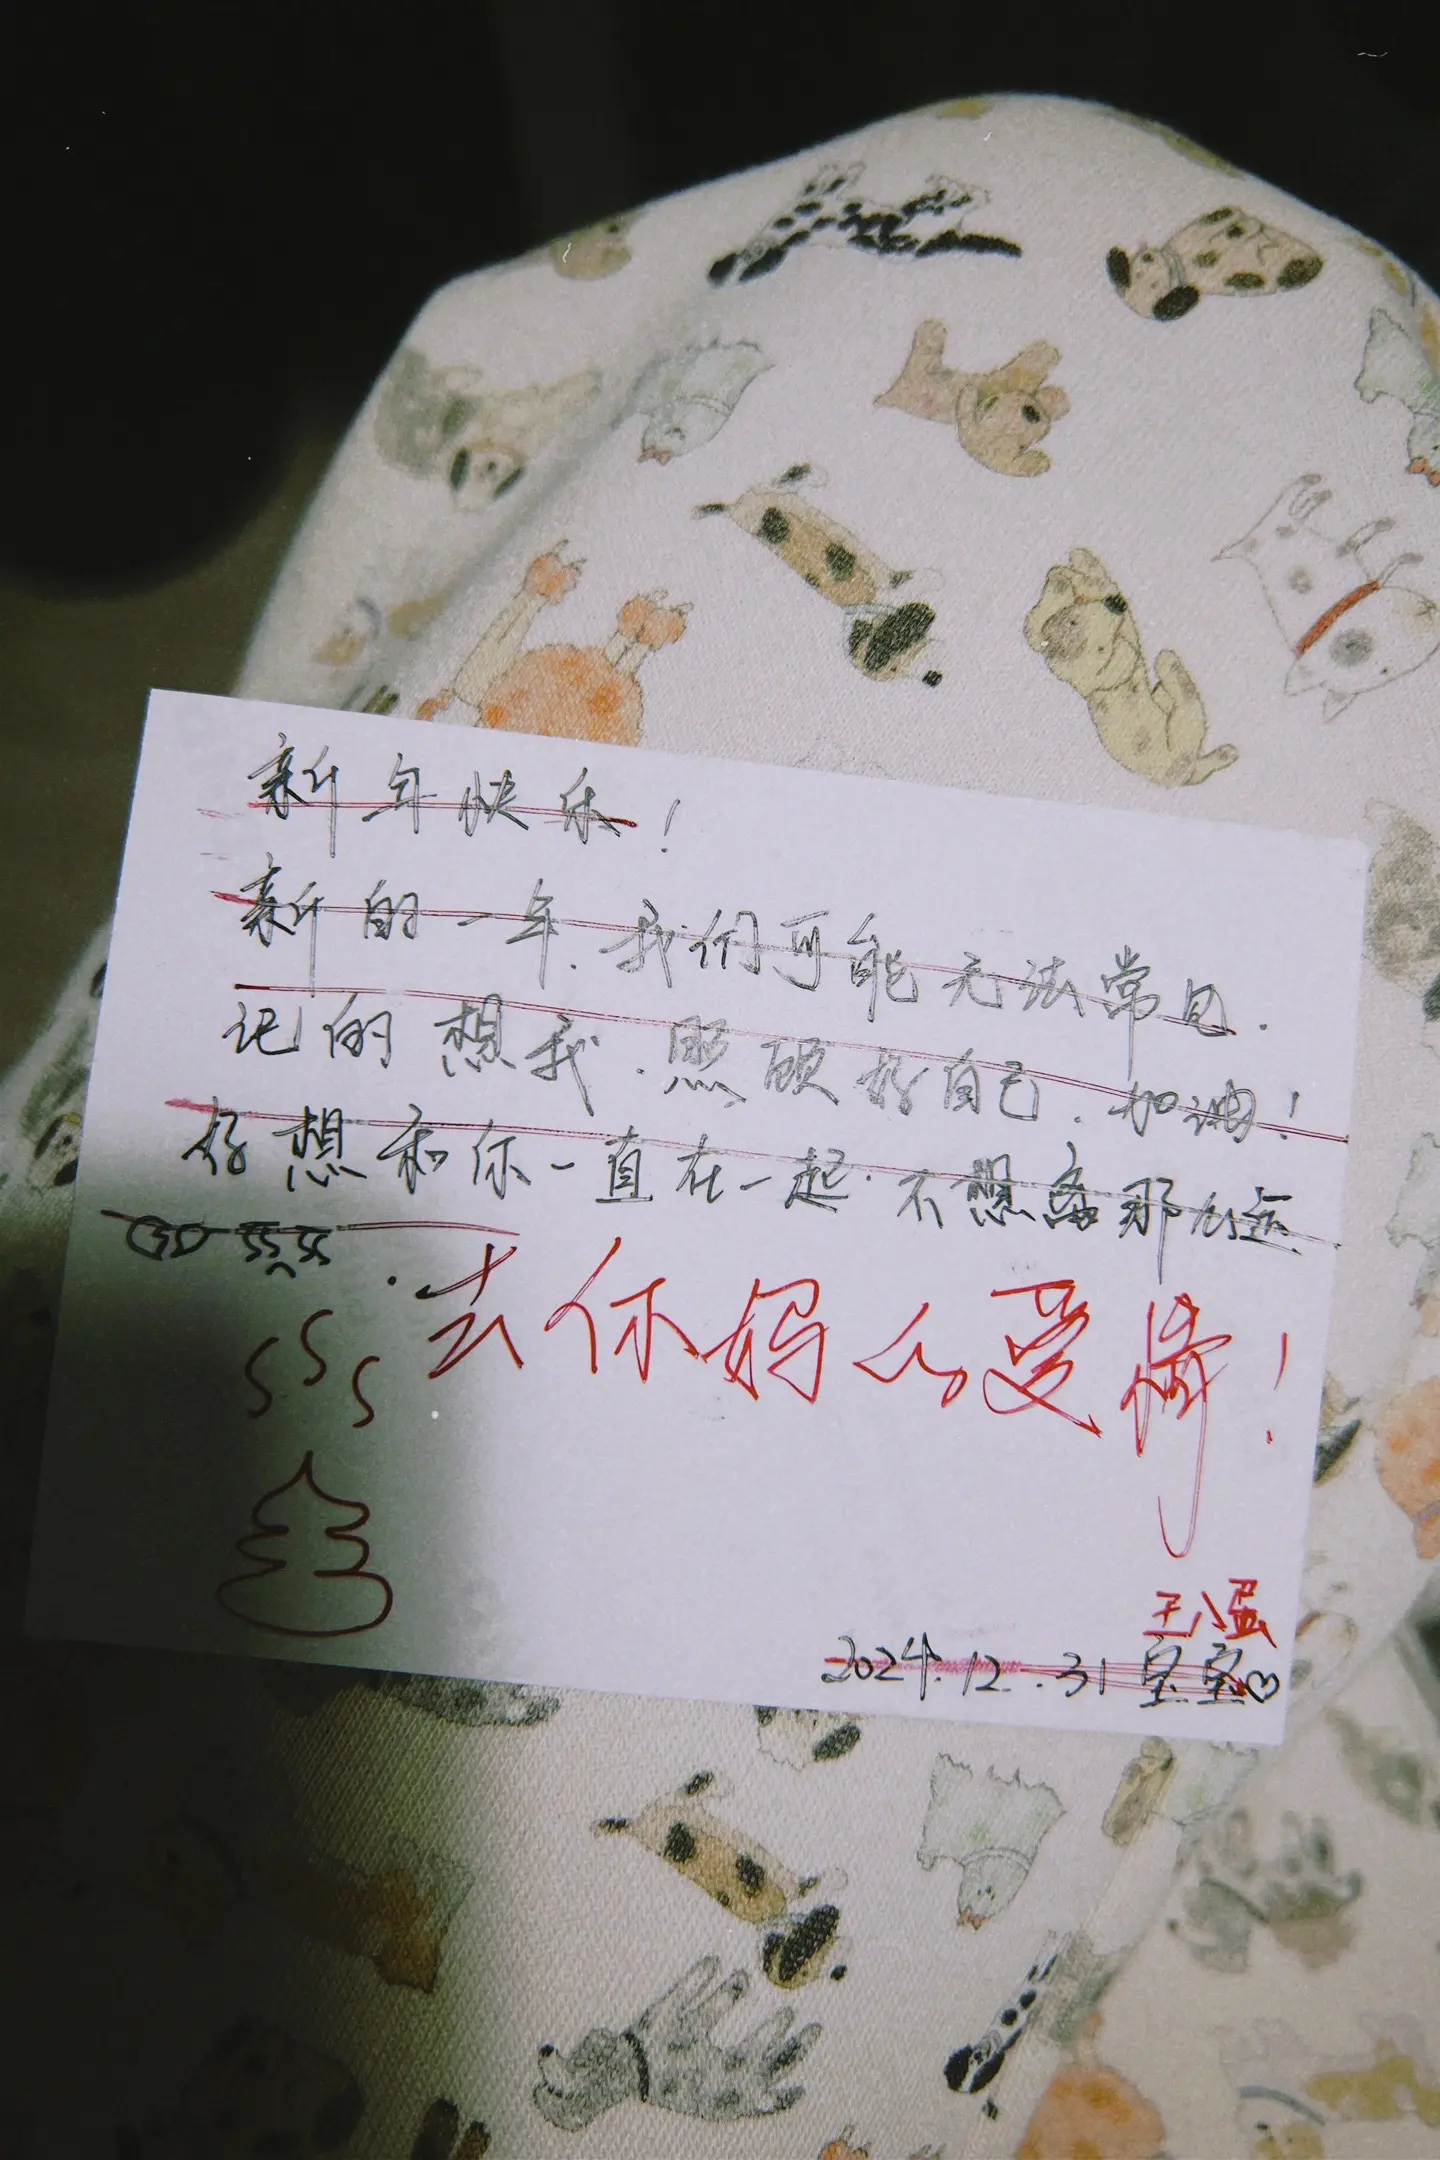 新年快乐！
新的一年.我们可能无法常见.
记的想我.照顾好自己.加油！
好想和你一直在一起.不想离那么远
去你妈么爱情！
王八蛋
2024.12.31宝宝♡